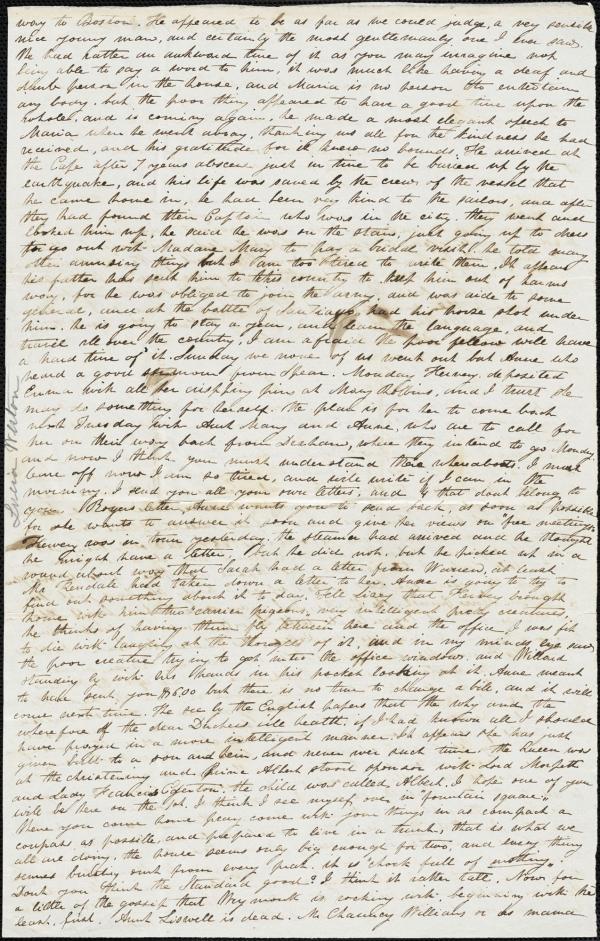 way to Boston. He appeared to be as far as we could judge, a very sensible
nice young man, and certainly the most gentlemanly one I ever saw.
We had rather an awkward time of it as you may imagine not
being able to say a word to him, it was much like having a deaf and
dumb person in the house, and Maria is no person to entertain
any body. but the poor thing appeared to have a good time upon the
whole, and is coming again, he made a most elegant speech to
Maria when he went away, thanking us all for the kindness he had
received, and his gratitude for it knew no bounds. He arrived at
the Cape after 7 years absence just in time to be buried up by the
earthquake, and his life was saved by the crew of the vessel that
he came home in, he had been very kind to the sailors, and after
they had found their Captain who was in the city, they went and
looked him up, he said he was on the stairs, just going up to dress
to go out with Madame Mary to pay a bridal visit. he told many
other amusing things but I am too tired to write them. It appears
his father has sent him to this country to keep him out of harms
way, for he was obliged to join the army, and was aide to some
general, and at the battle of Santiago had his horse shot under
him. he is going to stay a year, and learn the language, and
travel all over the country, I am afraid the poor fellow will have
a hard time of it. Sunday we none of us went out but Anne who
heard a good sermon from Spear. Monday Hervey deposited
Emma with all her crisping pins at Mary Robbins, and I trust she
may do something for herself. the plan is for her to come back
next Tuesday with Aunt Mary and Anne, who are to call for
her on their way back from Dedham, where they intend to go Monday
and now I think you must understand there whereabouts. I must
leave off now I am so tired, and will write if I can in the
morning. I send you all your own letters, and 4 that dont belong to
you. Rogers letter Anne wants you to send back, as soon as possible
for she wants to answer it soon and give her views on "free meetings."
Hervey was in town yesterday, the steamer had arrived and he thought
he might have a letter, but he did not. but he picked up in a
round about way that Sarah had a letter from Warren, at least
Mr Kendale had taken down a letter to her. Anne is going to try to
find out something about it to day. Tell Lizzy that Hervey brought
home with him two carrier pigeons, very intelligent pretty creatures,
he thinks of having them fly between here and the office, I was fit
to die with laughing at the thoughts of it and in my minds eye saw
the poor creature trying to get into the office windows, and Willard
standing by with his hands in his pocket looking at it. Anne meant
to have sent you $6.00 but there is no time to change a bill, and it will
come next time. We see by the English papers that the why and the
wherefore of the dear Duchess ill health, if I had known all I should
have prayed in a more intelligent manner. It appears she has just
given birth to a son and heir, and never was such time. the Queen was
at the christening and Prince Albert stood sponsor with Lord Morpeth
and Lady Frances Egerton. the child was called Albert. I hope one of you
will be here on the 4th. I think I see myself over in "fountain square".
When you come home pray come with your things in as compact a
compass as possible, and prepared to live in a trunk, that is what we
all are doing, the house seems only big enough for two, and every thing
seems bursting out from every part. it is "chock full of nothing".
Dont you think the Standard good? I think it rather tall. Now for
a little of the gossip that Weymouth is rocking with. beginning with the
least, first. Aunt Liswell is dead. Mr Chauncy Williams or as mama
Lucia Weston